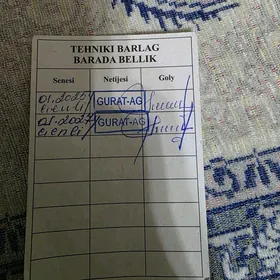 TEHNIKI BARLAG
BARADA BELLIK
Senesi Netijesi Goly
01.2025 GURAT-AG
01.2027 GURAT-AG